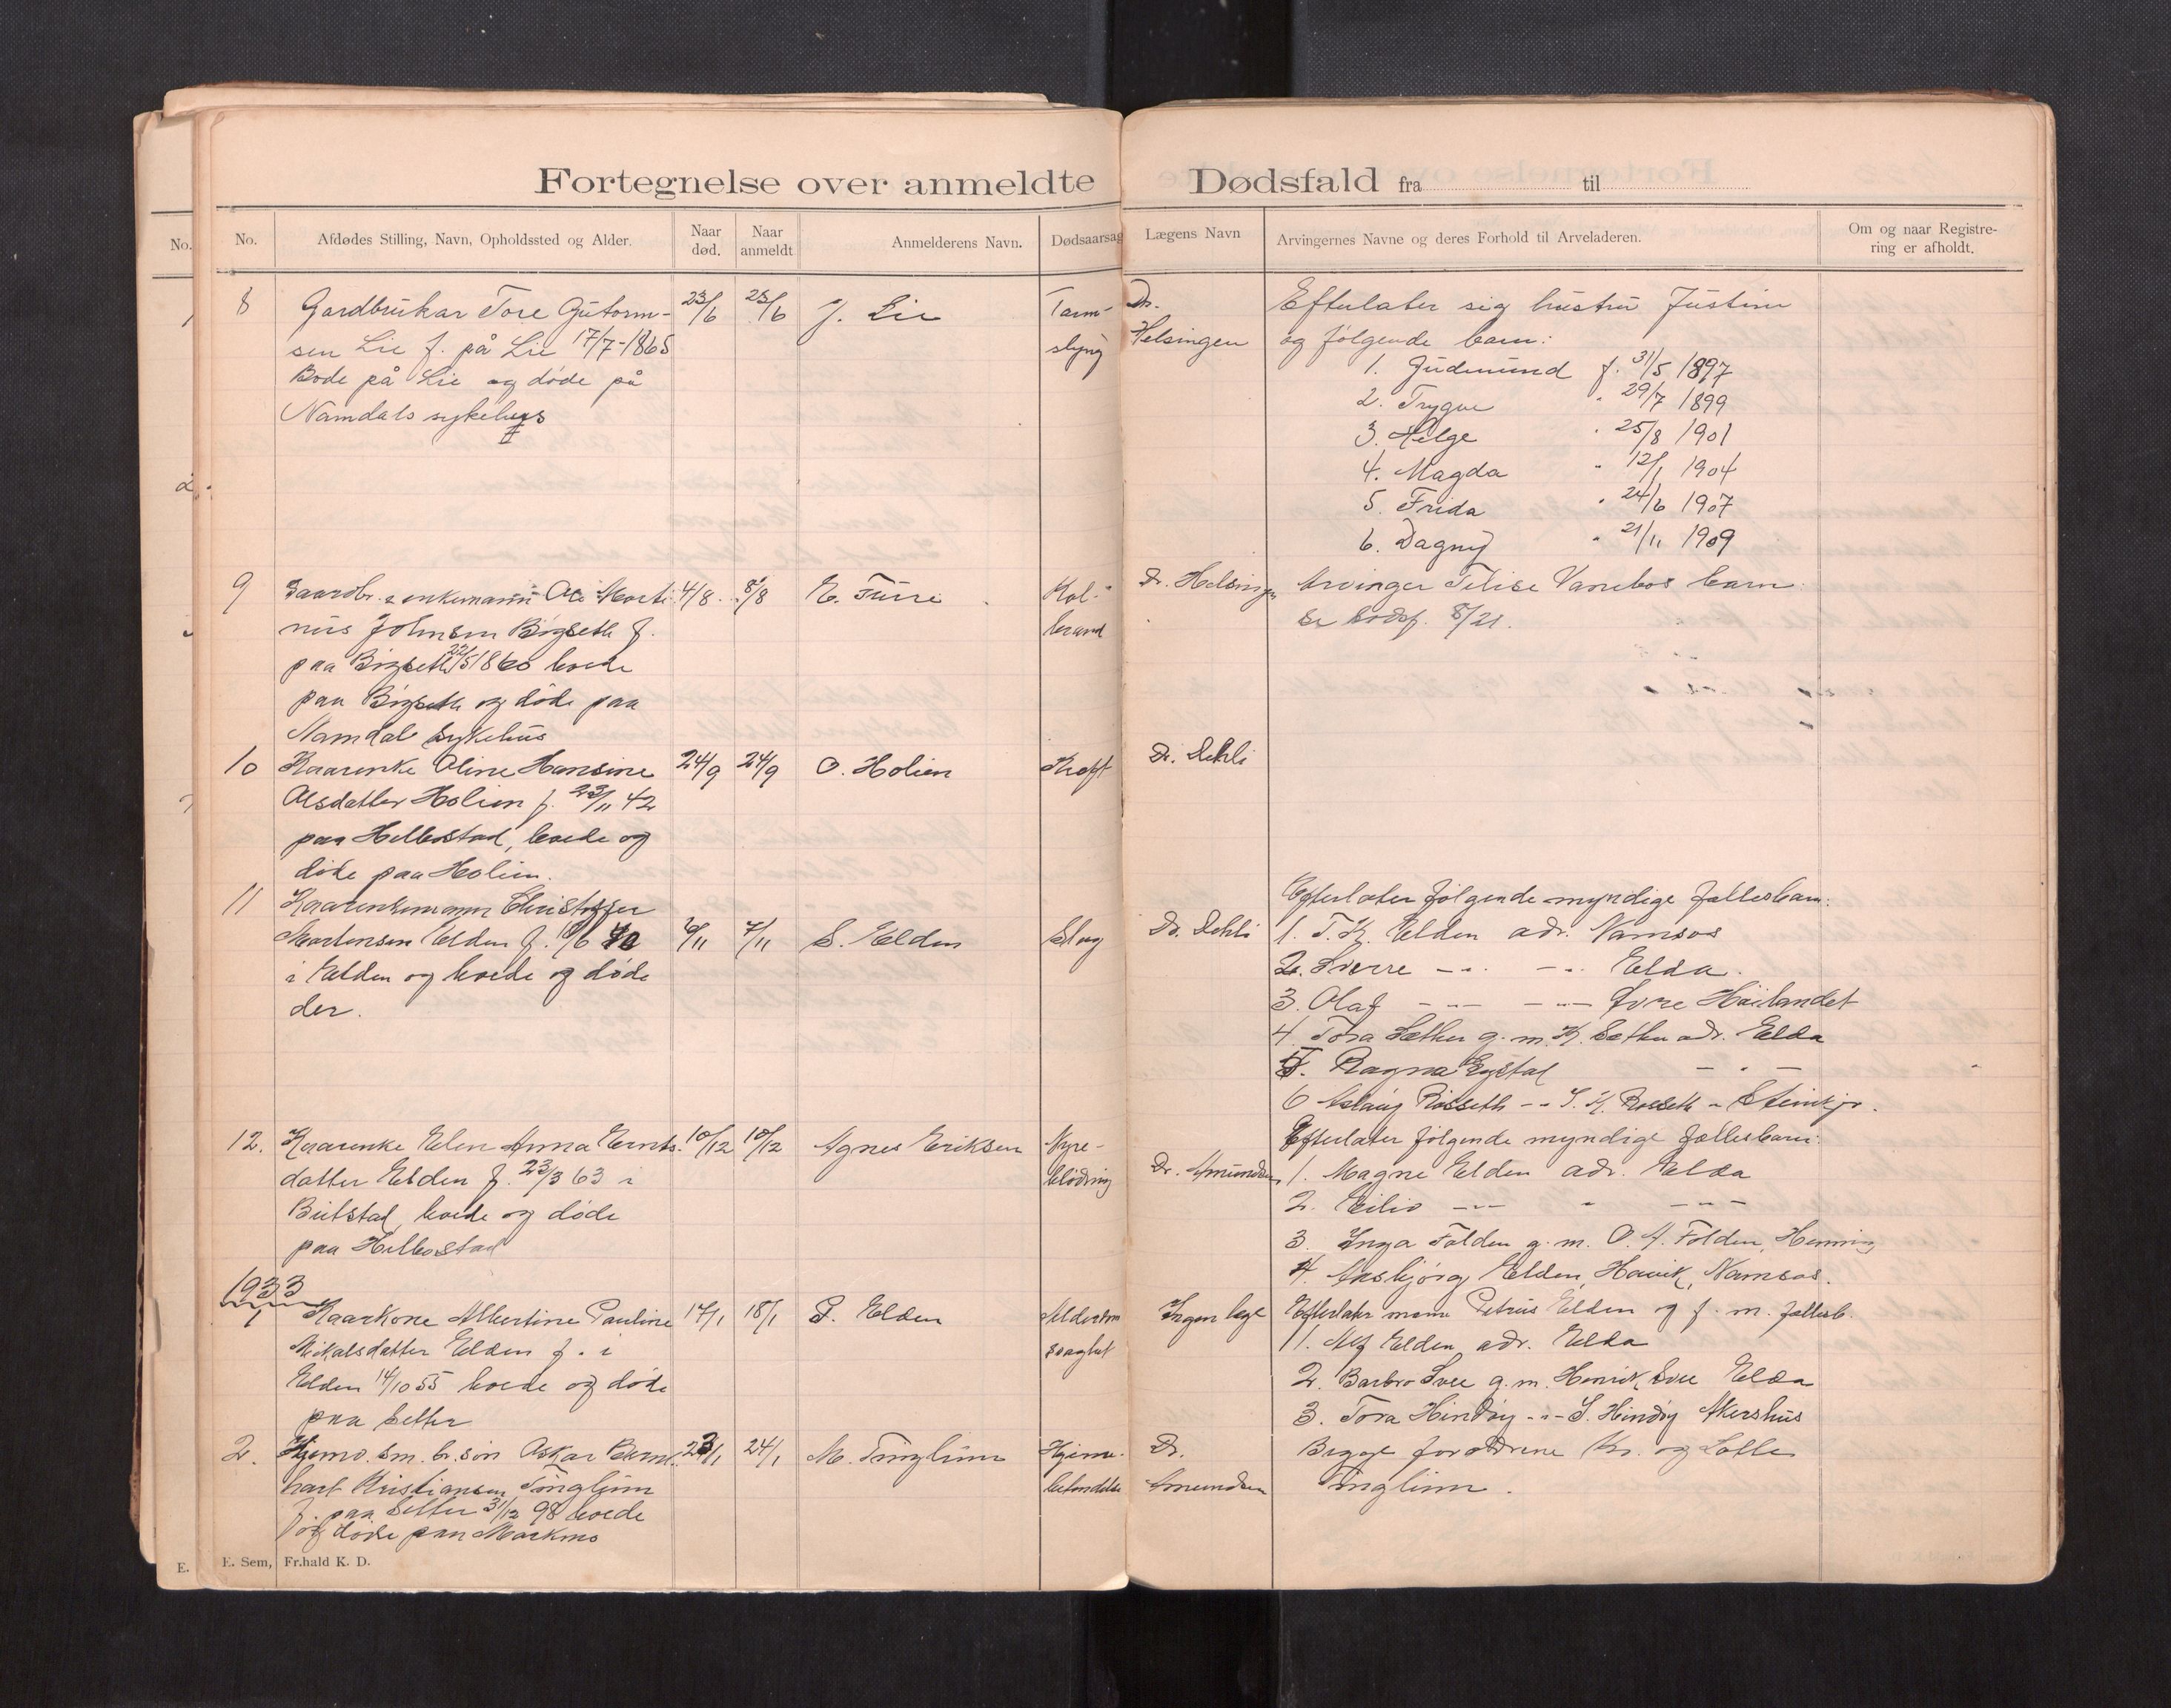 Fortegnelse over anmeldte Dødsfald fra til
No. Afdødes Stilling, Navn, Opholdssted og Alder. Naar død. Naar anmeldt Anmelderens Navn. Dødsaarsag Lægens Navn Arvingernes Navne og deres Forhold til Arveladeren. Om og naar Registrering er afholdt.
No.
8 Gardbrukar Tore Gutorm- 23/6 25/6 J. Lie Tarm- Dr. Efterlater sig hustru Justine
sen Lie f. på Lie 17/7-1865 slyng Helsingen og følgende barn:
Bode på Lie og døde på 1. Gudmund f. 31/5 1897
Namdals sykehus 2. Trygve " 29/7 1899
3. Helge " 25/8 1901
4. Magda " 12/1 1904
5. Frida " 24/6 1907
6. Dagny " 21/11 1909
9 Gaardbr. enkemann Ole Marti- 4/8 8/8 E. Furre Kol- Dr. Helsingen Arvinger Telise Vannebos barn
nus Johnsen Bøgseth f. brand Se dødsf. 8/21.
paa Bøgseth 22/5 1860 boede
paa Bøgseth og døde paa
Namdal sykehus
10 Kaarenke Oline Hansine 24/9 24/9 O. Holien Kræft Dr. Dehli
Olsdatter Holien f. 23/11 42
paa Helbostad, boede og
døde paa Holien.
11 Kaarenkemann Christoffer Efterlater følgende myndige fællesbarn:
Mortensen Elden f. 10/6 40 6/11 7/11 S. Elden Slag Dr. Dehli 1. T. K. Elden adr. Namsos
i Elden og boede og døde 2. Sverre -"- -"- Elda.
der. 3. Olaf -"- -"- Øvre Høilandet
4. Tora Sæther g. m. K. Sæther adr. Elda
5. Ragna Egstad - " -
6 Aslaug Røsseth -"- Røsseth " Steinkjr.
12. Kaarenke Elen Anna Ernts- 10/12 10/12 Agnes Eriksen Nyre- Efterlater følgende myndige fællesbarn:
datter Elden f. 23/3 63 i blødning Dr. Amundsen 1. Magne Elden adr. Elda
Beitstad, boede og døde 2. Eiliv -"- " -"-
paa Helbostad 3. Inga Folden g. m. O. A. Folden, Henning
4. Aasbjørg Elden, Høvik, Namsos.
1933
1 Kaarkone Albertine Pauline 17/1 18/1 P. Elden Alderdom Ingen læge Efterlater mann Petrus Elden og f. m. fællesb.
Mikalsdatter Elden f. i svaghet 1. Alf Elden adr. Elda
Elden 14/10 55 boede og døde 2. Barbro Svee g. m. Henrik Svee Elda
paa Setter 3. Tora Hindøy -"- S. Hindøy Akershus
2. Hjemv. sm. br. søn Oskar Bern- 23/1 24/1 M. Tinglum Hjerne- Dr. Begge forældrene Kr. og Lotte
hart Kristiansen Tinglum betendelse Amundsen Tinglum.
f. paa Setter 31/12 98 boede
og døde paa Markmo
E. Sem, Fr.hald K. D.
E.